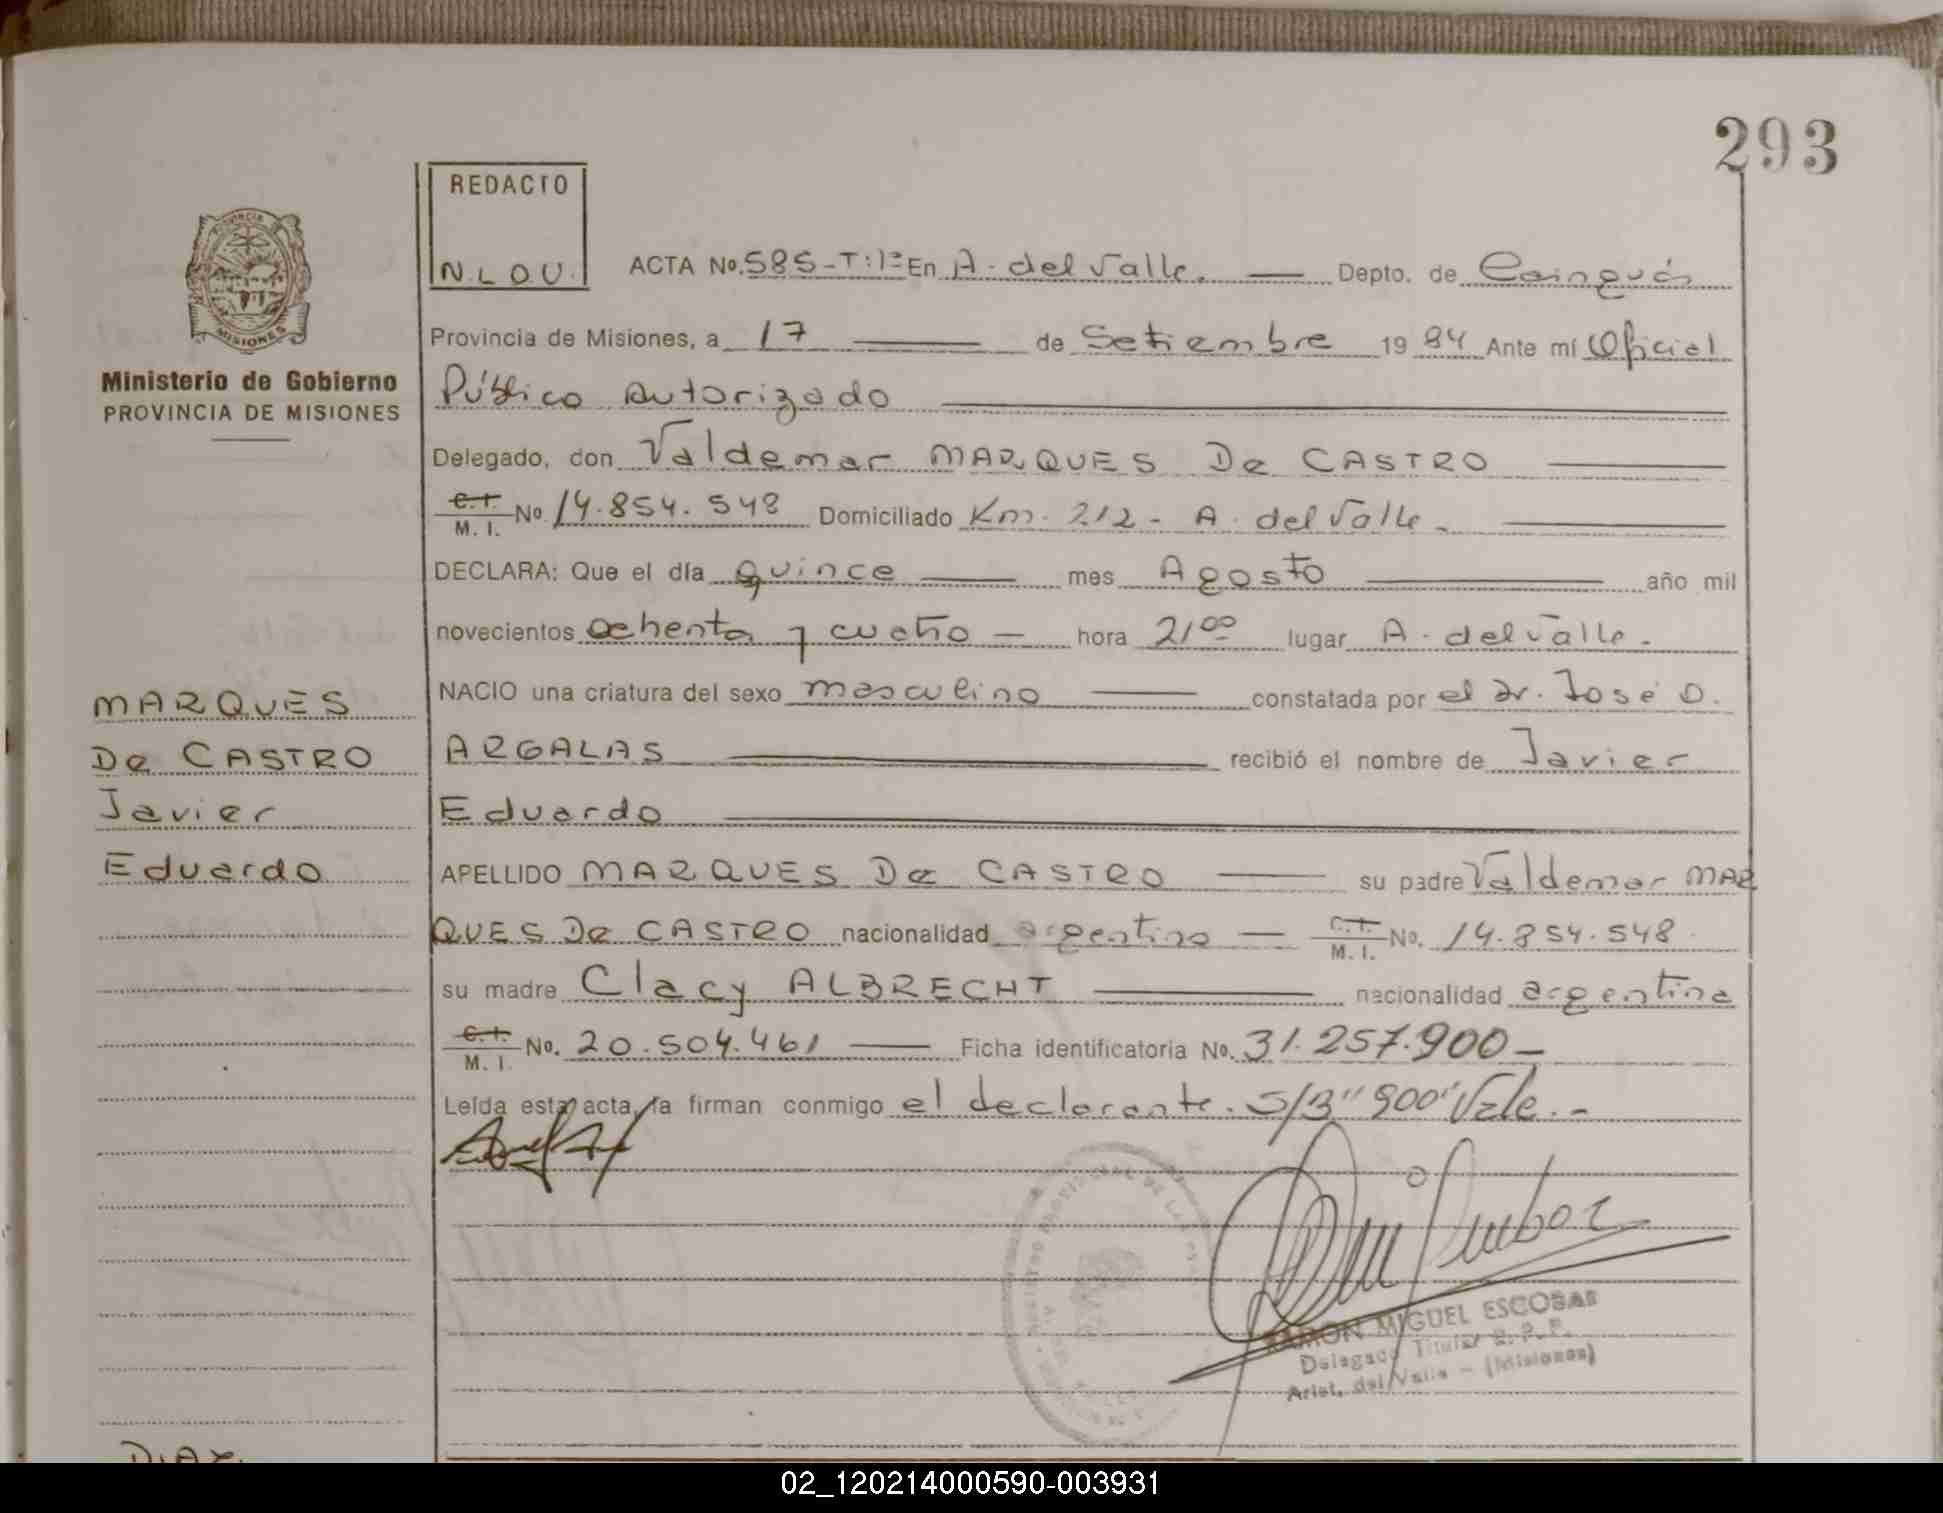 293
REDACTO
N.L.O.U.
PROVINCIA
MISIONES
Ministerio de Gobierno
PROVINCIA DE MISIONES
ACTA No. 585-T:1º En A. del Valle. Depto. de Cainguás
Provincia de Misiones, a 17 de Setiembre 19 84 Ante mí Oficial
Público Autorizado
Delegado, don Valdemar MARQUES De CASTRO
C.I. M. I. No. 14.854.548 Domiciliado Km. 212 - A. del Valle.
DECLARA: Que el día quince mes Agosto año mil
novecientos ochenta y cuatro hora 21⁰⁰ lugar A. del Valle.
NACIO una criatura del sexo masculino constatada por el Dr. José O.
ARGALAS recibió el nombre de Javier
Eduardo
APELLIDO MARQUES De CASTRO su padre Valdemar MAR
QUES De CASTRO nacionalidad argentino C.I. M. I. No. 14.854.548
su madre Clacy ALBRECHT nacionalidad argentina
C.I. M. I. No. 20.504.461 Ficha identificatoria No. 31.257.900-
Leída esta acta, la firman conmigo el declarante. S/B "900" Vale.-
MARQUES
De CASTRO
Javier
Eduardo
RAMON MIGUEL ESCOBAR
Delegado Titular R. P. P.
Arist. del Valle - (Misiones)
DIAZ
02_120214000590-003931